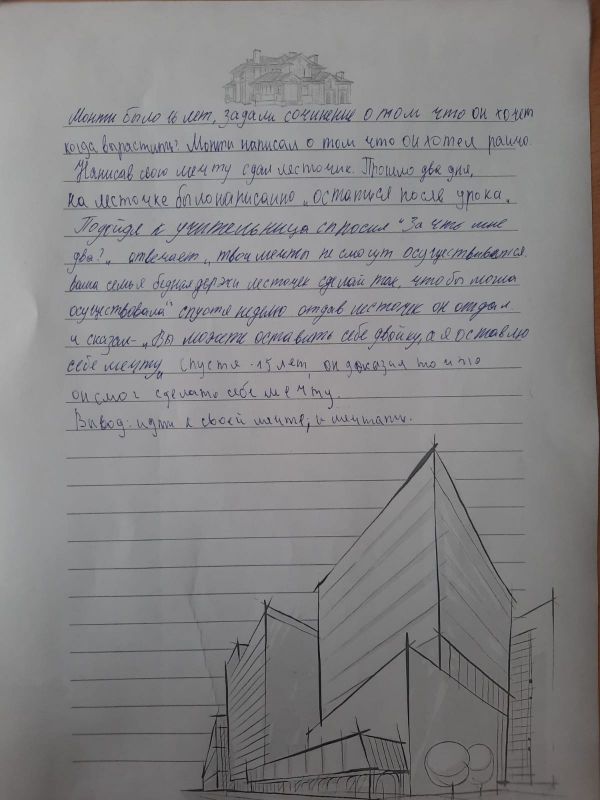 Монти было 16 лет, задали сочинение о том что он хочет
когда вырастить? Монти написал о том что он хотел ранчо.
Написав свою мечту сдал лесточик. Прошло два дня,
на лесточке было написанно „остаться после урока„
Подойдя к учительница спросил "За что мне
два?„ отвечает „твои мечты не смогут осуществиваться.
ваша семья бедная держи лесточек сделай так, чтобы могла
осуществовала" спустя неделю отдав лесточек он отдал.
и сказал-„Вы можете оставить себе двойку, а я оставлю
себе мечту„ спустя -15 лет, он доказал то и то
он смог сделать себе мечту.
Вывод: идти к своей мечте, и мечтать.